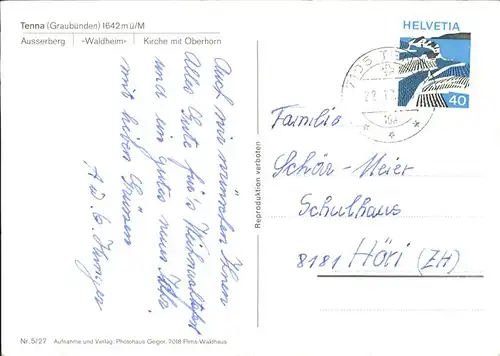 Tenna (Graubünden) 1642 m ü/M
Ausserberg | «Waldheim» | Kirche mit Oberhorn
Auch wir wünschen Ihnen
Alles Gute für's Weihnachtsfest
und ein gutes neues Jahr
mit lieben Grüssen
A. u. E.
HELVETIA
40
7105 TE
22.1
Familie
Schär-Meier
Schulhaus
8181 Höri (ZH)
Reproduktion verboten
Nr. 5/27 Aufnahme und Verlag: Photohaus Geiger, 7018 Flims-Waldhaus